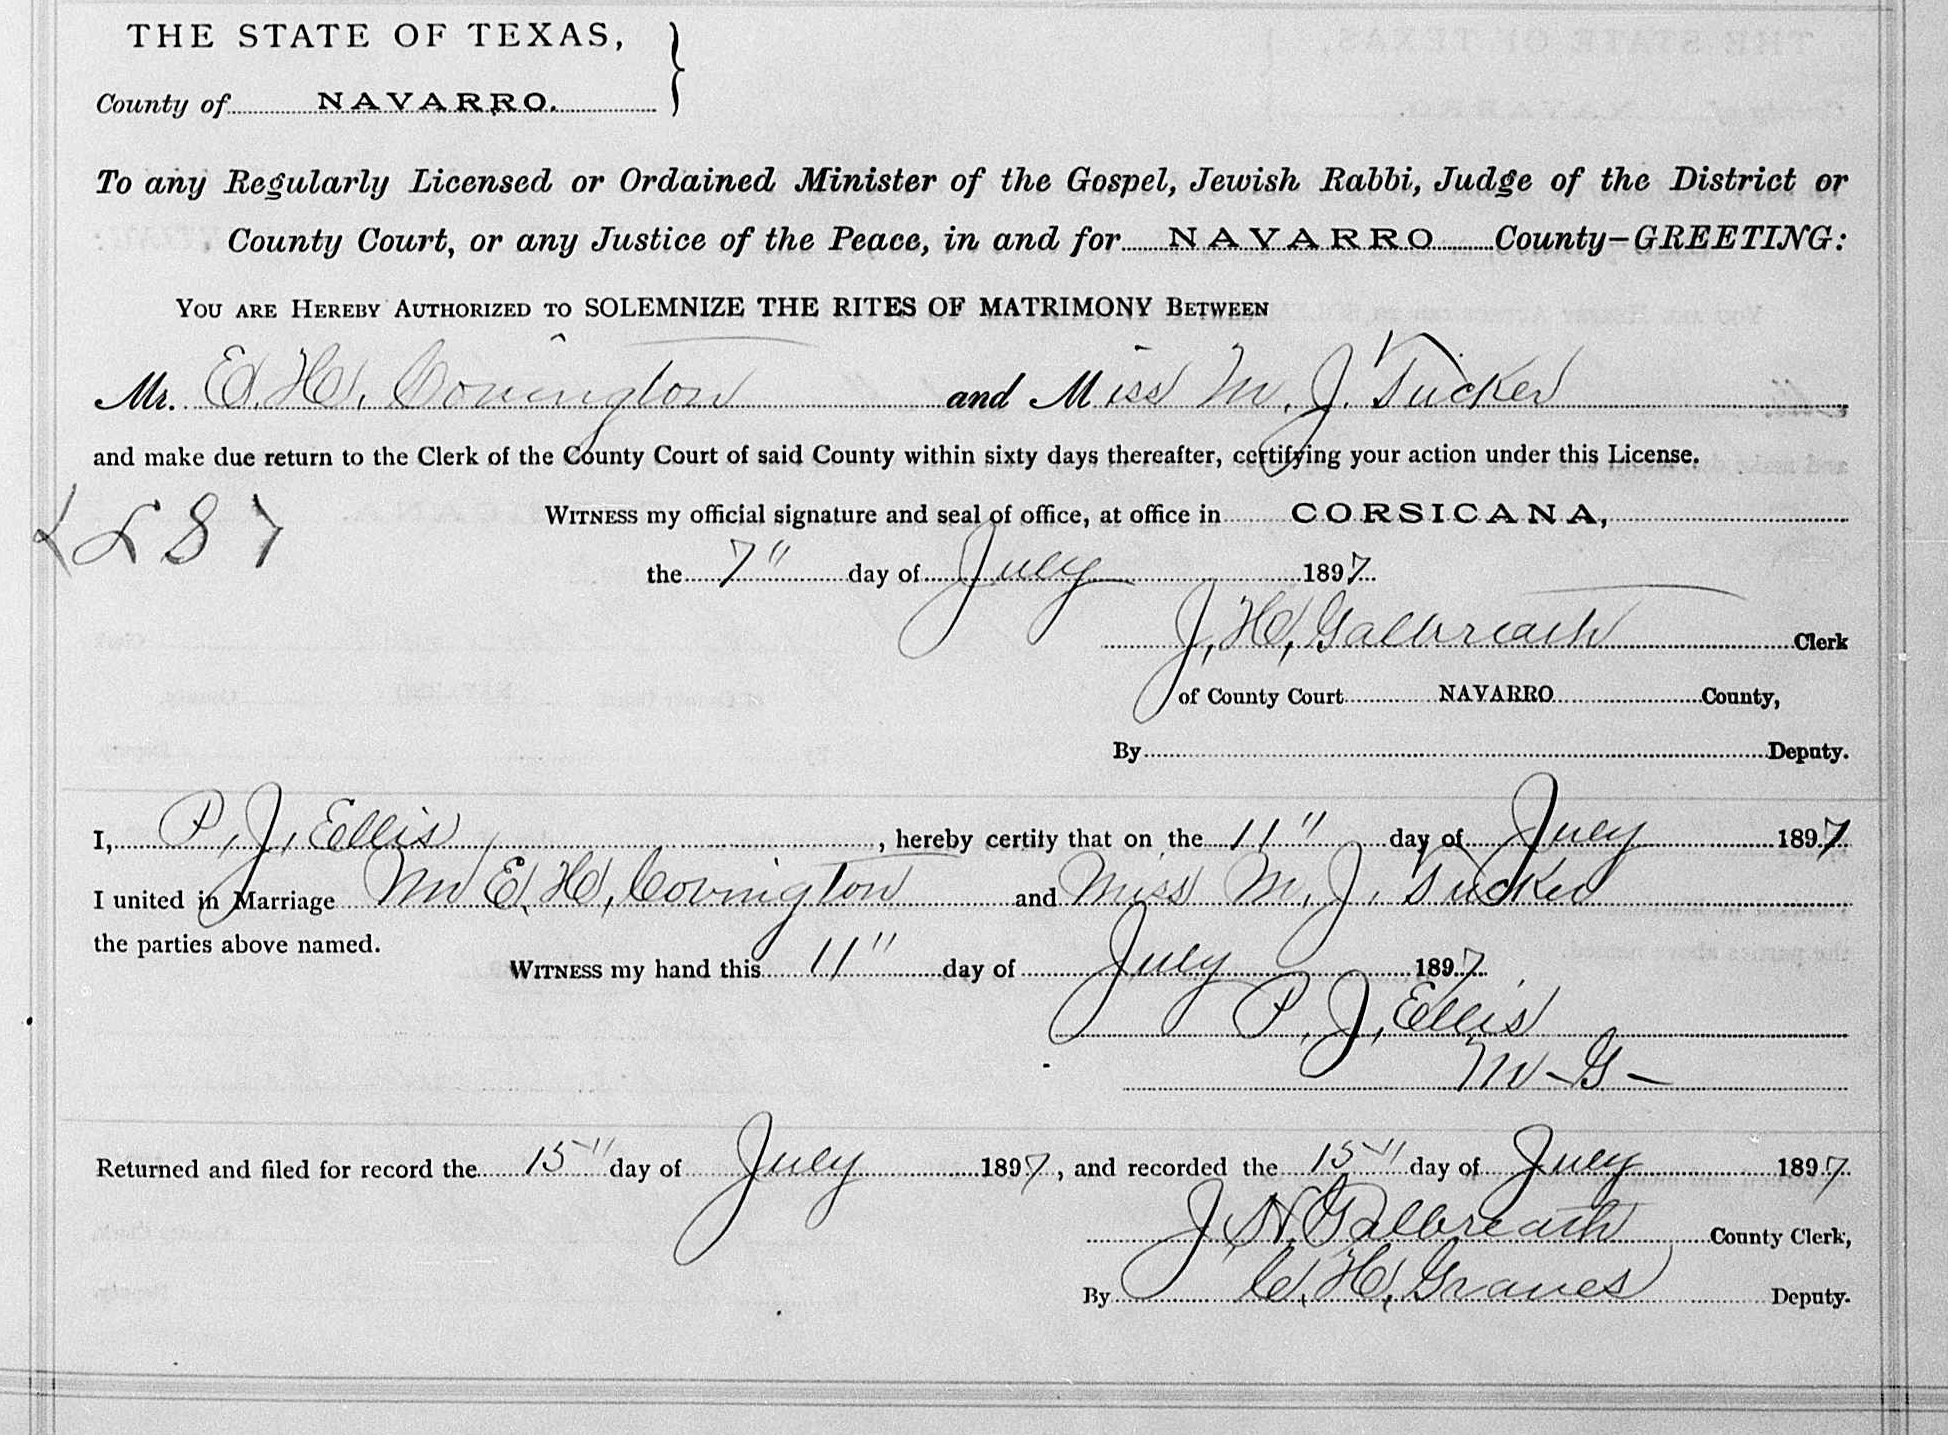 THE STATE OF TEXAS,
County of NAVARRO.
To any Regularly Licensed or Ordained Minister of the Gospel, Jewish Rabbi, Judge of the District or
County Court, or any Justice of the Peace, in and for NAVARRO County-GREETING:
YOU ARE HEREBY AUTHORIZED TO SOLEMNIZE THE RITES OF MATRIMONY BETWEEN
Mr. E. H. Covington and Miss M. J. Tucker
and make due return to the Clerk of the County Court of said County within sixty days thereafter, certifying your action under this License.
{LS}
WITNESS my official signature and seal of office, at office in CORSICANA,
the 7" day of July 1897.
J. H. Galbreath Clerk
of County Court NAVARRO County,
By Deputy.
I, P. J. Ellis, hereby certify that on the 11" day of July 1897
I united in Marriage Mr E. H. Covington and Miss M. J. Tucker
the parties above named.
WITNESS my hand this 11" day of July 1897.
P. J. Ellis
M-G-
Returned and filed for record the 15" day of July 1897, and recorded the 15" day of July 1897.
J H Galbreath County Clerk,
By C. H. Graves Deputy.